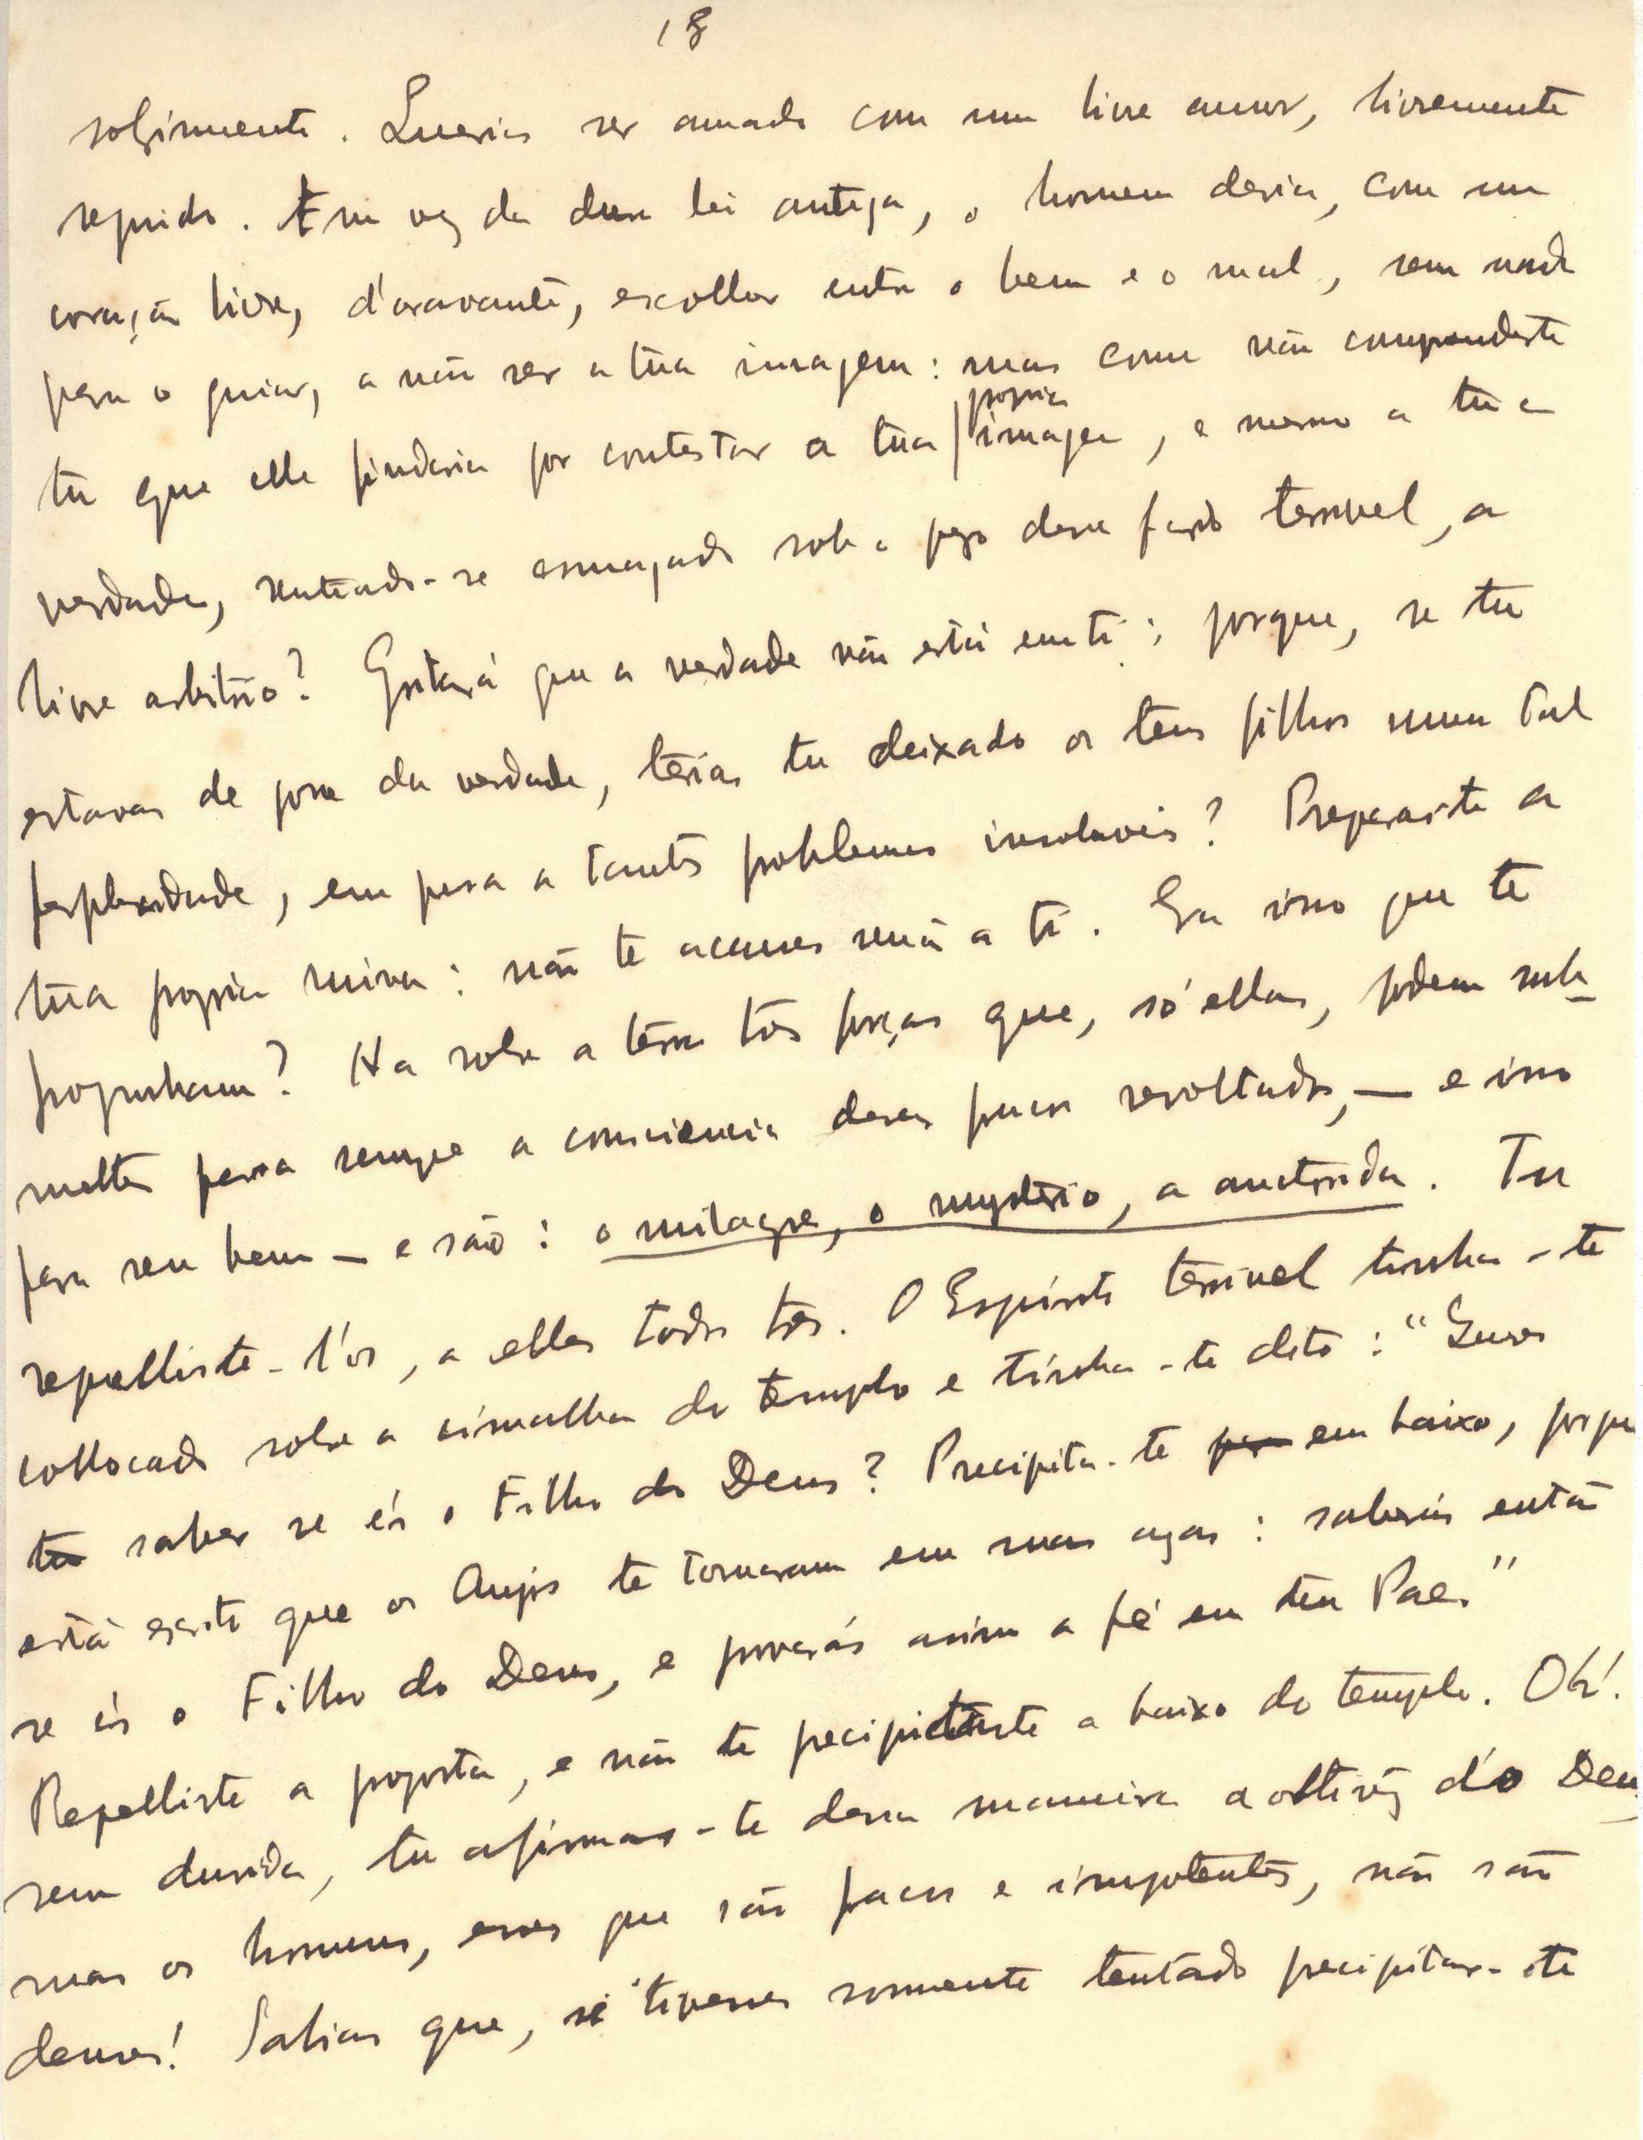 18
soffrimento. Querias ser amado com um livre amor, livremente
seguido. Em vez da dura lei antiga, o homem devia, com um
coração livre, d'oravante, escolher entre o bem e o mal, sem nada
para o guiar, a não ser a tua imagem: mas como não comprendeste
tu que elle findaria por contestar a tua propria imagem, e mesmo a tua
verdade, sentindo-se esmagado sob o peso desse fardo terrivel, o
livre arbitrio? Gritará que a verdade não está em ti; porque, se tu
estavas de posse da verdade, terias tu deixado os teus filhos numa tal
perplexidade, em presa a tantos problemas insoluveis? Preparaste a
tua propria ruina: não te accuses senão a ti. Era isso que te
propunham? Ha sobre a terra tres forças que, só ellas, podem sub-
metter para sempre a consciencia desses fracos revoltados, — e isso
para seu bem — e são: o milagre, o mysterio, a auctoridade. Tu
repelliste-l'os, a elles todos tres. O Espirito terrivel tinha-te
collocado sobre a cimalha do templo e tinha-te dito: "Queres
tu saber se és o Filho de Deus? Precipita-te em baixo, porque
está escripto que os Anjos te tomaram em suas azas: saberás então
se és o Filho de Deus, e provarás assim a fé em teu Pae."
Repelliste a proposta, e não te precipitaste a baixo do templo. Oh!
sem duvida, tu afirmas-te dessa maneira a altivez d'o Deus,
mas os homens, esses que são fracos e impotentes, não são
deuses! Sabias que, se tivesses somente tentado precipitar-te